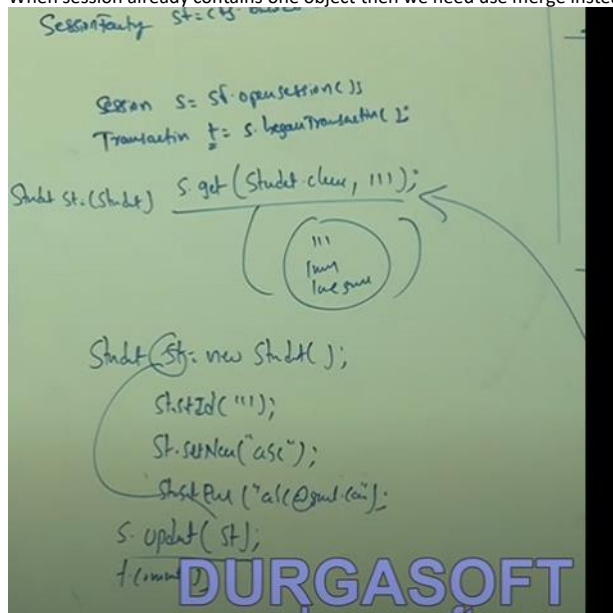 When session already contains one object then we need use merge inste
SessionFactory sf=cfg.
Session s= sf.opensession();
Transaction t= s.beganTransaction();
Studet st=(Studet) s.get(Studet.class, 111);
111
Studet st= new Studet();
st.setId(111);
st.setName("abc");
"abc@gmail.com");
s.update(st);
t.commit()
DURGASOFT